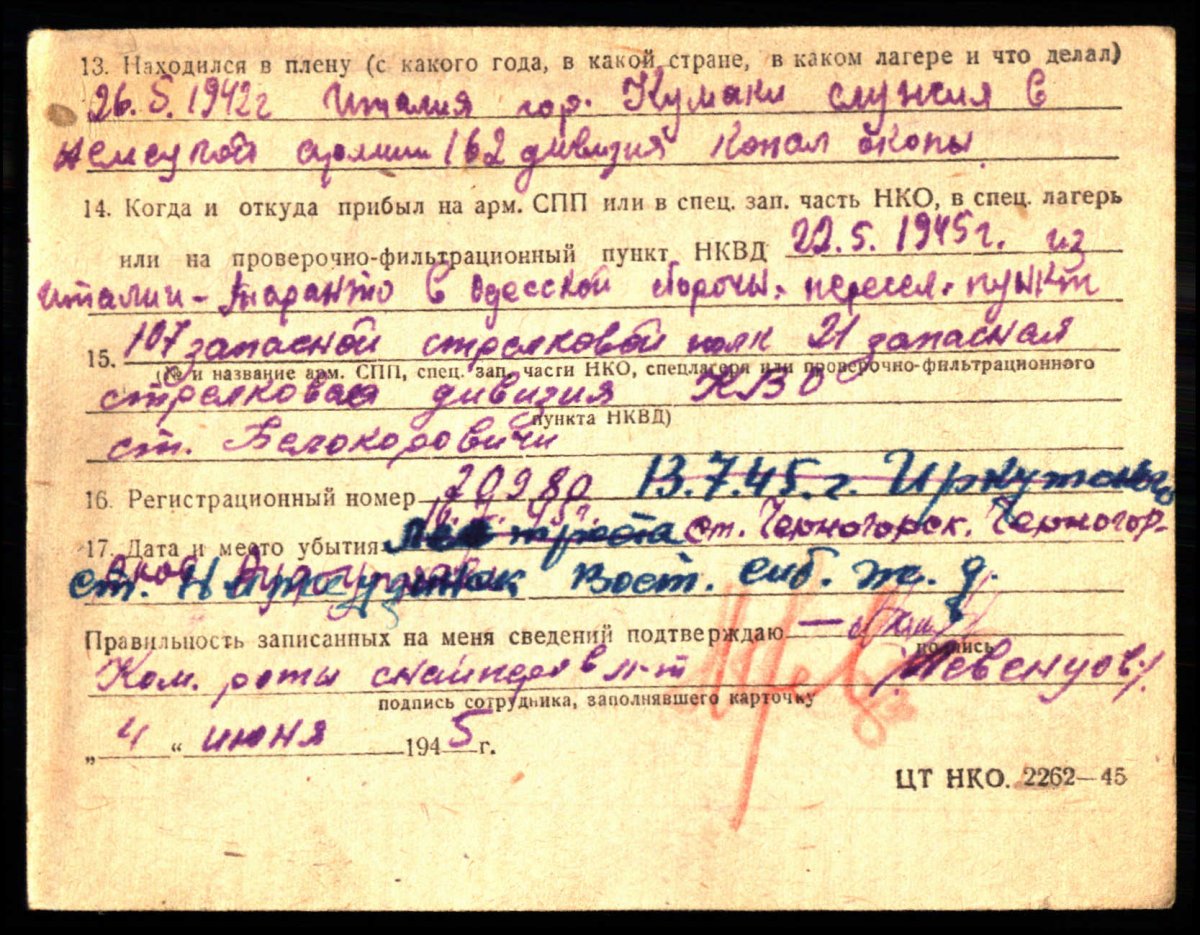 13. Находился в плену (с какого года, в какой стране, в каком лагере и что делал)
26.5.1942г Италия гор. Кумаки служил в
162 дивизия копал окопы
14. Когда и откуда прибыл на арм. СПП или в спец. зап. часть НКО, в спец. лагерь
или на проверочно-фильтрационный пункт НКВД 22.5.1945г. из
Италии - Таранто в Одесской пересел. пункт
107 запасной стрелковой полк 21 запасная
15.
(№ и название арм. СПП, спец. зап. части НКО, спецлагеря или проверочно-фильтрационного
стрелковая дивизия КВО
пункта НКВД)
ст. Белокоровичи
16. Регистрационный номер 20980 13.7.45.г. Иркутского
17. Дата и место убытия треста ст. Черногорск. Черногор-
ст. Вост. сиб. ж. д.
Правильность записанных на меня сведений подтверждаю
подпись
Ком. роты снайперов л-т Шевенцов
подпись сотрудника, заполнявшего карточку
„ 4 “ июня 1945 г.
ЦТ НКО. 2262—45